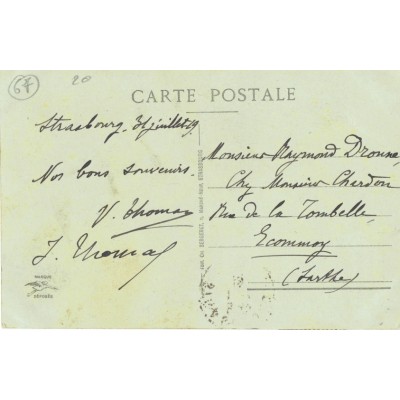 6F
20
CARTE POSTALE
Strasbourg. 31 juillet 19
Nos bons souvenirs.
V. Thomas
J. Thomas
Monsieur Raymond Dronne,
Chz Monsieur Chardon
Rue de la Tombelle
Ecommoy
(Sarthe)
MARQUE
DÉPOSÉE